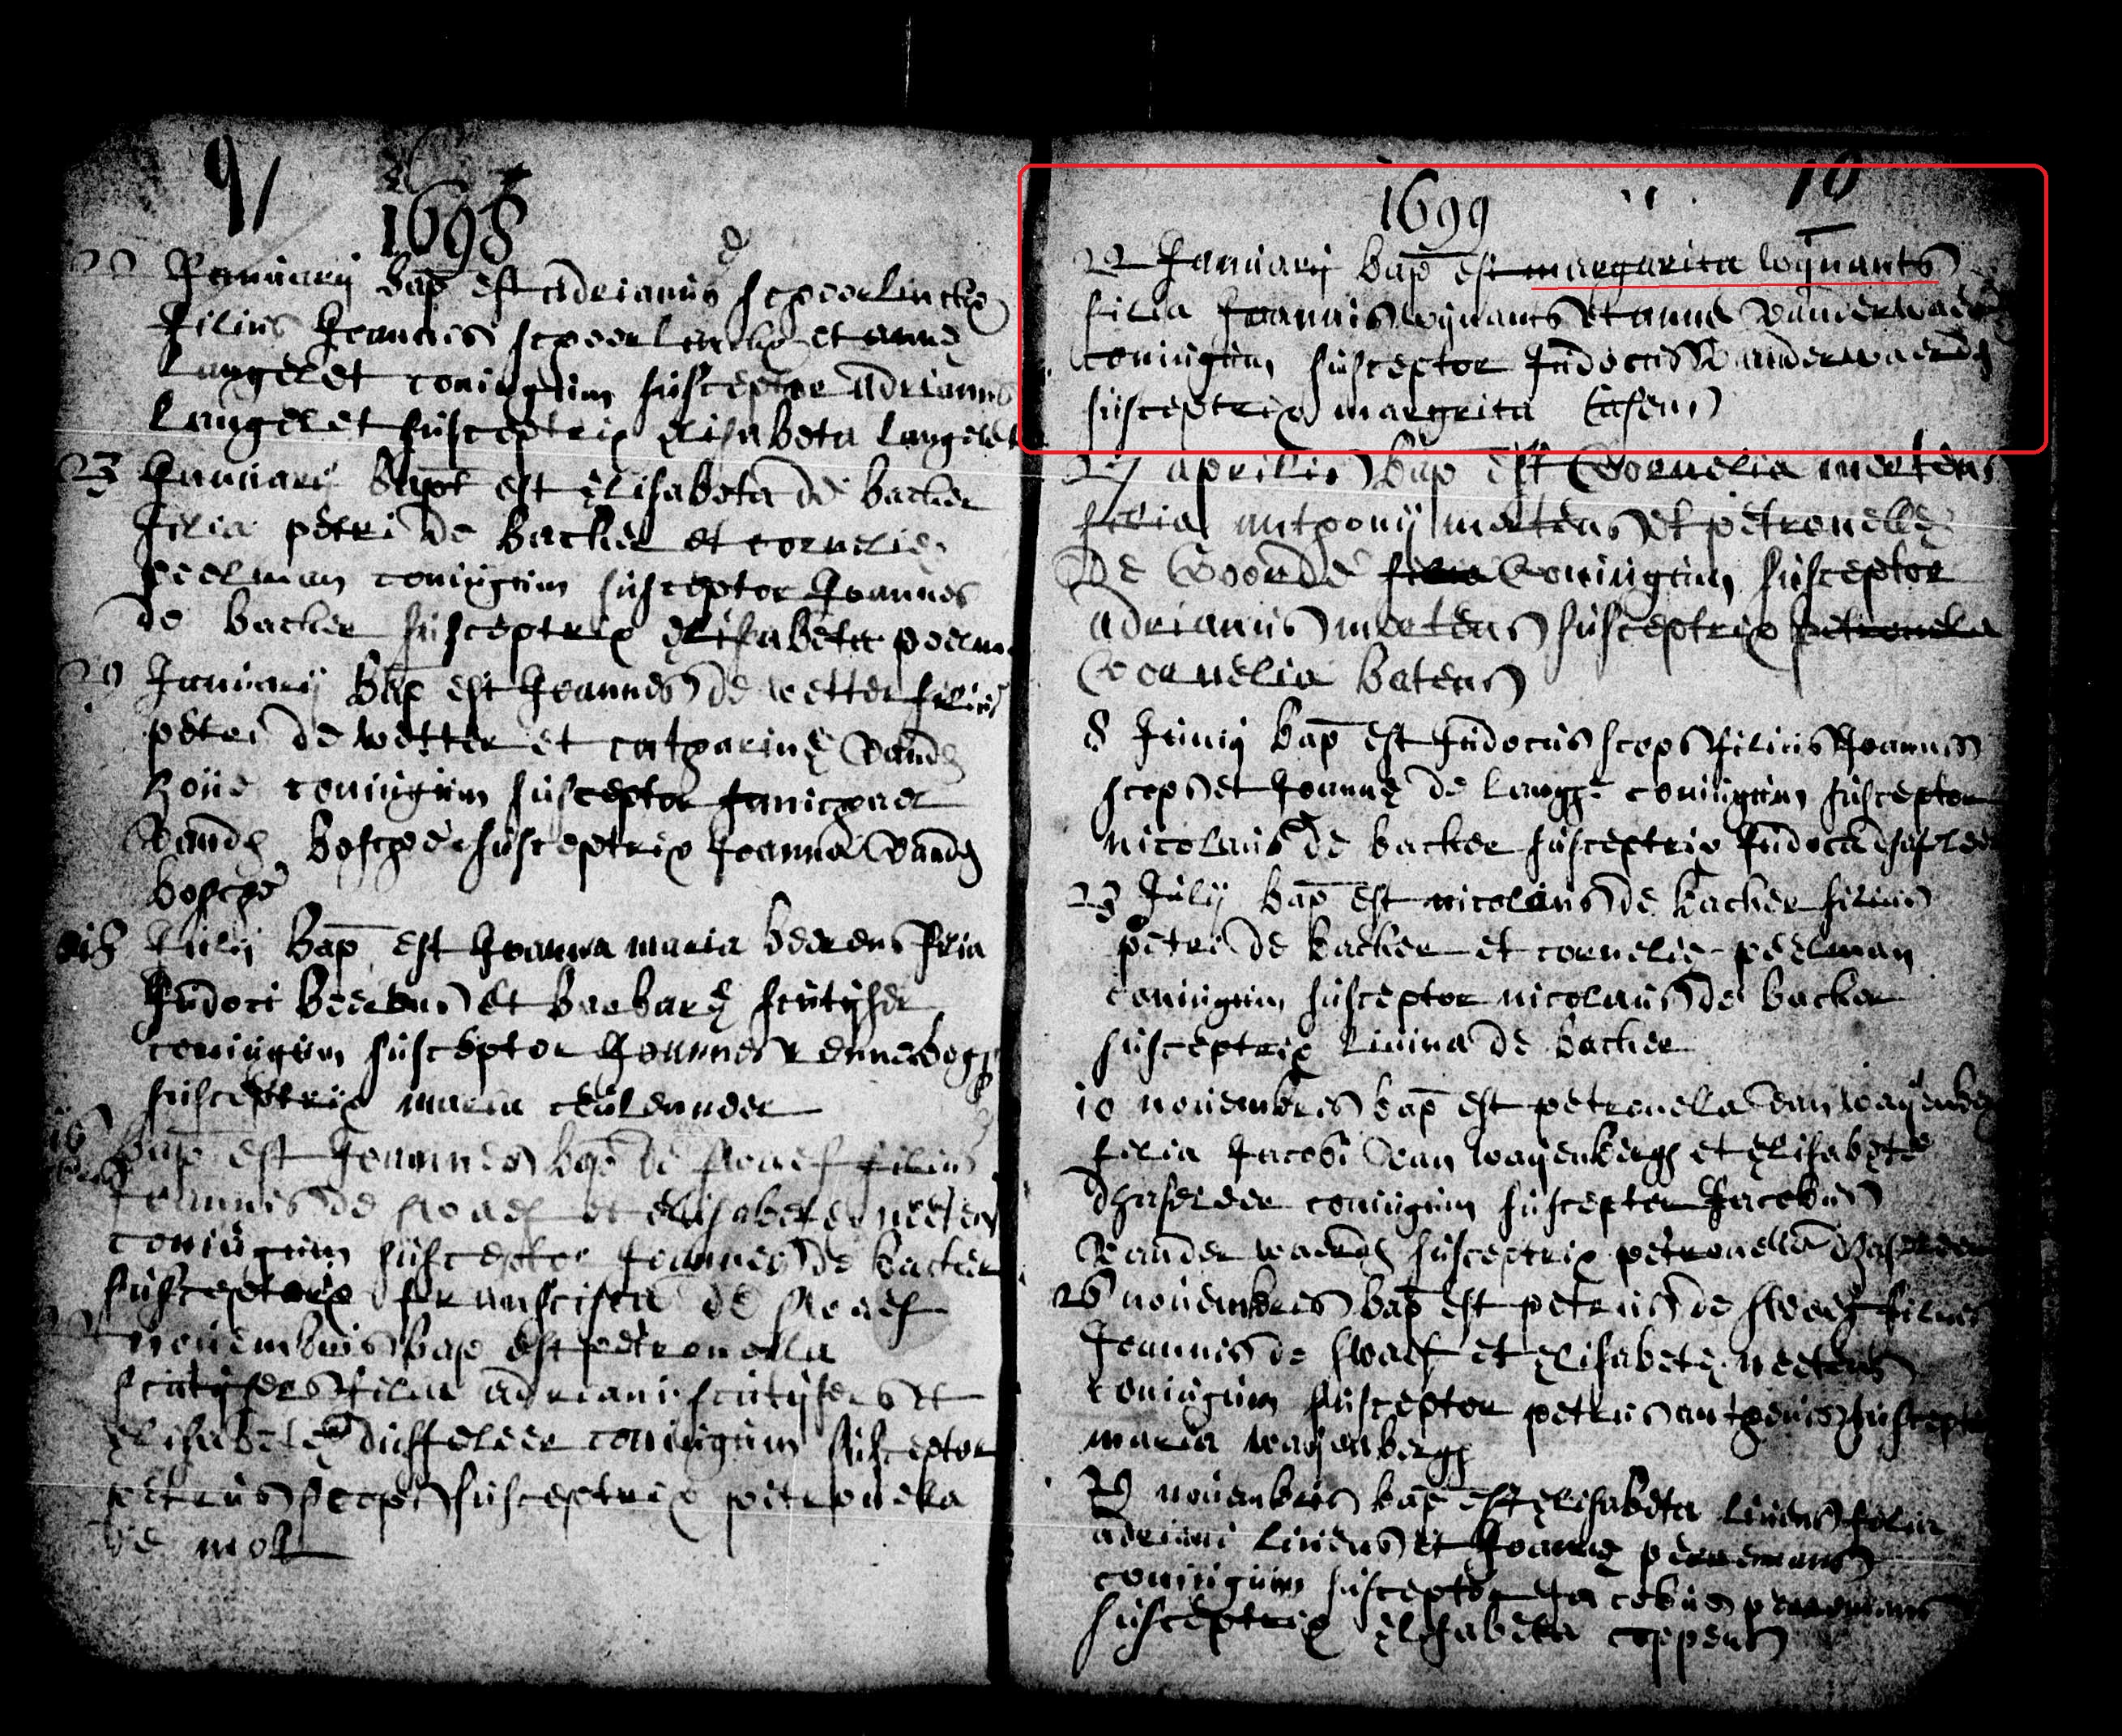 9
1698
Januarij bap est Adrianus scoeerlinckx
filius Joannis scoeerlinckx et anne
Langelet coniugum susceptor adrianus
Langelet susceptrix Elisabeta Langelet
23 Januarij bapt est Elisabeta de backer
filia petri de backer et cornelie
peelman coniugum susceptor Joannes
de backer susceptrix Elisabeta peelm
Januarij bap est Joannes de wetter filius
petri de wetter et catharine vand
hove coniugum susceptor
vand bossche susceptrix Joanna vand
bossche
Julij bap est Joanna maria beerens filia
Judoci beerens et barbare scutijser
coniugum susceptor Joannes
susceptrix maria
bap est Joannes bap de filius
Joannis de et elisabete neetens
coniugum susceptor Joannes de backer
susceptrix fransisca de
novembris bap est petronella
scutijsers filia adriani scutijsers et
Elisabete duffeleer coniugum susceptor
petrus sceps susceptrix petronella
de mol
10
1699
22 Januarij bap est margarita wijnants
filia Joannis wijnants et anne vanderwaer
coniugum susceptor Judocus vanderwaerd
susceptrix margrita
27 aprilis bap est Cornelia mertens
filia antoonij mertens et petronelle
De Coninugum susceptor
adrianus mertens susceptrix petronela
Cornelia batens
8 Junij bap est Judocus sceps filius Joannis
sceps et Joanne de coniugum susceptor
nicolaus de backer susceptrix Judoca
23 Julij bap est nicolaus de backer filius
petri de backer et cornelie peelman
coniugum susceptor nicolaus de backer
susceptrix livina de backer
10 novembris bap est petronela van waijenber
filia Jacobi van waijenbergh et Elisabete
dhaseleer coniugum susceptor Jacobus
vander waerd susceptrix petronella
26 novembris bap est petrus de swaef filius
Joannis de swaef et Elisabete neetens
coniugum susceptor petrus anthonis suscept
maria waijenbergh
novembris bap est Elisabeta livens filia
adriani livens et Joanne peremans
coniugum susceptor Jacobus peremans
susceptrix Elisabeta coppens